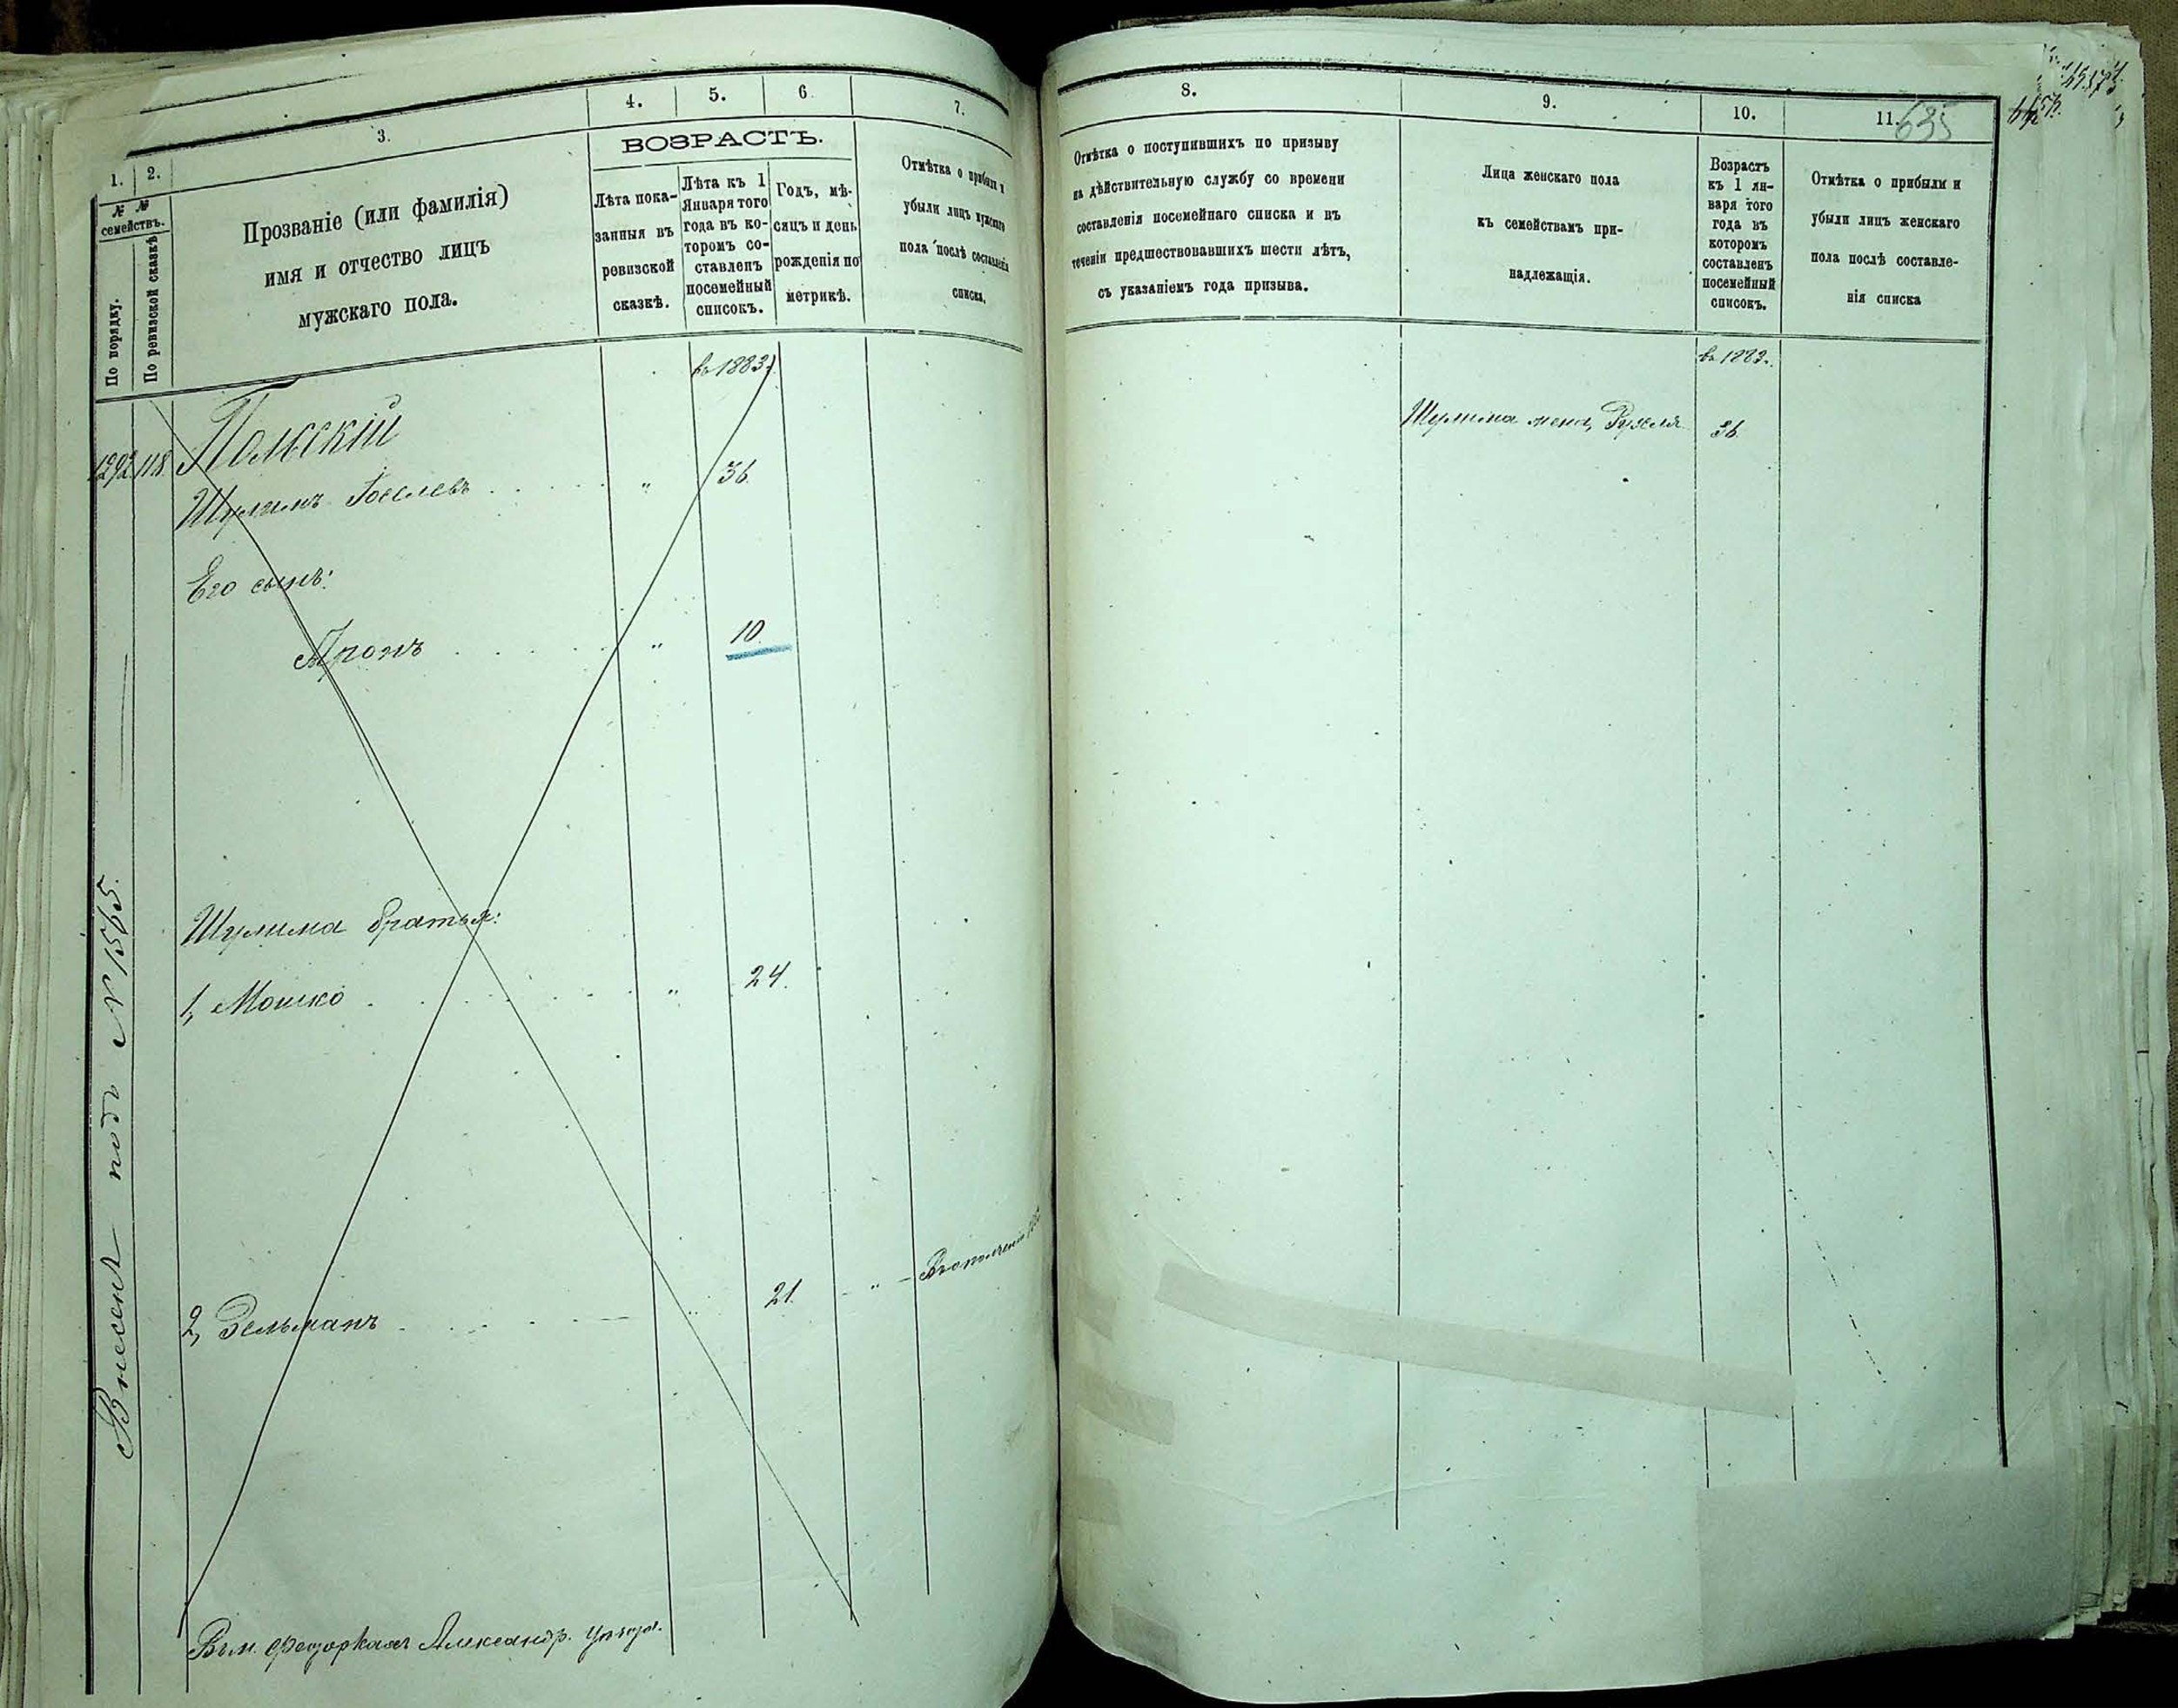 1.
2.
3.
4.
5.
6.
7.
№ №
семействъ.
По порядку.
По ревизской сказкѣ
Прозваніе (или фамилія)
имя и отчество лицъ
мужскаго пола.
ВОЗРАСТЪ.
Лѣта пока-
занныя въ
ревизской
сказкѣ.
Лѣта къ 1
Января того
года въ ко-
торомъ со-
ставленъ
посемейный
списокъ.
Годъ, мѣ-
сяцъ и день
рожденія по
метрикѣ.
Отмѣтка о прибыли и
убыли лицъ мужскаго
пола послѣ составленія
списка.
въ 1883 г.
1292 118 Польскій
Шулимъ Іоселевъ " 36.
Его сынъ:
Аронъ " 10.
Шулима братья:
1, Мошко " 24.
2, Зельманъ " 21. "
Внесенъ подъ № 1565.
Александр.
8.
9.
10.
11.
635
Отмѣтка о поступившихъ по призыву
на дѣйствительную службу со времени
составленія посемейнаго списка и въ
теченіи предшествовавшихъ шести лѣтъ,
съ указаніемъ года призыва.
Лица женскаго пола
къ семействамъ при-
надлежащія.
Возрастъ
къ 1 ян-
варя того
года въ
которомъ
составленъ
посемейный
списокъ.
Отмѣтка о прибыли и
убыли лицъ женскаго
пола послѣ составле-
нія списка
въ 1883 г.
Шулима жена, Рухля 36.